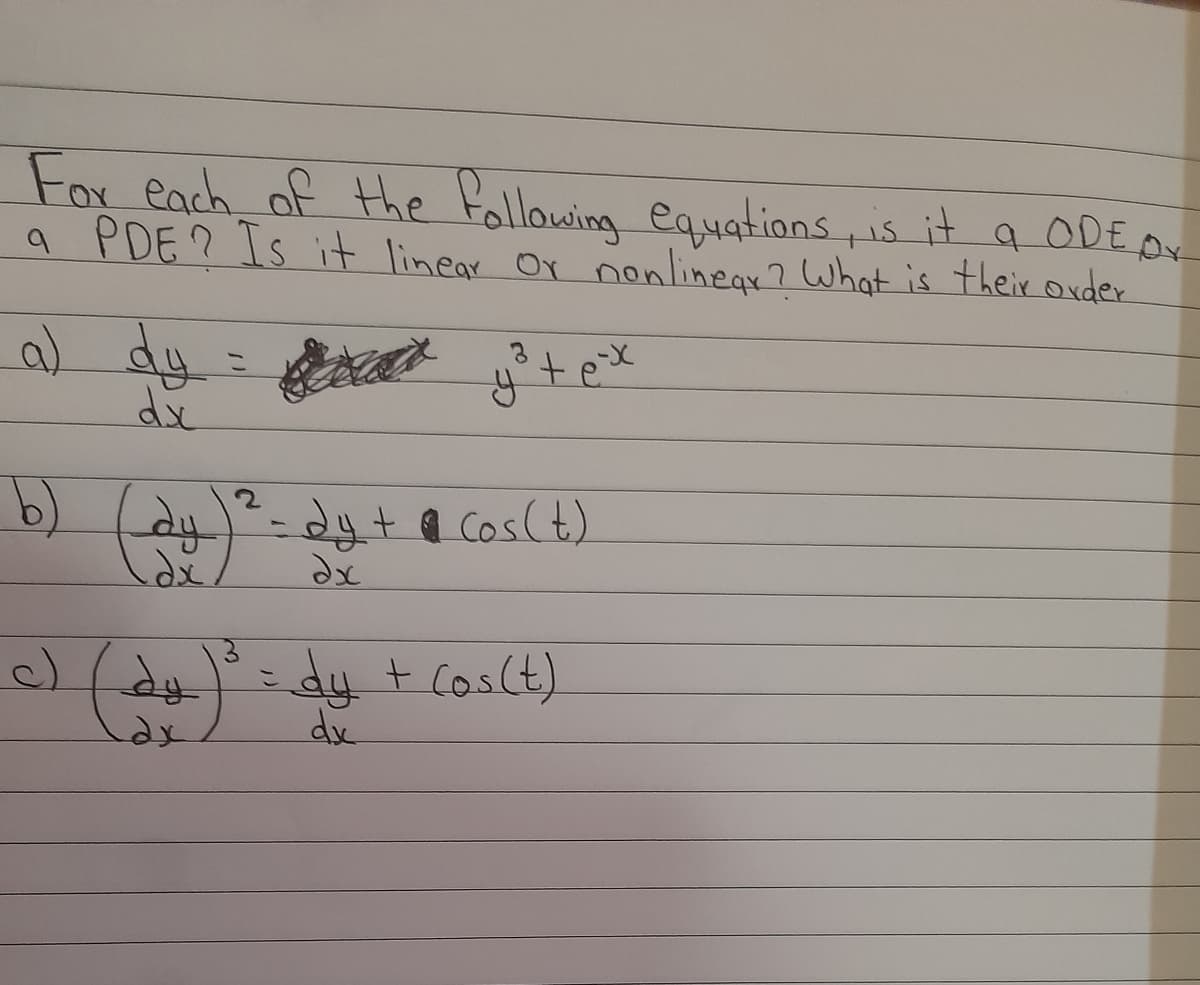 For each of the following equations, is it a ODE or
a PDE? Is it linear or nonlinear? What is their order
a) dy/dx = y³ + e⁻ˣ
b) (∂y/∂x)² = ∂y/∂x + cos(t)
c) (∂y/∂x)³ = dy/dx + cos(t)